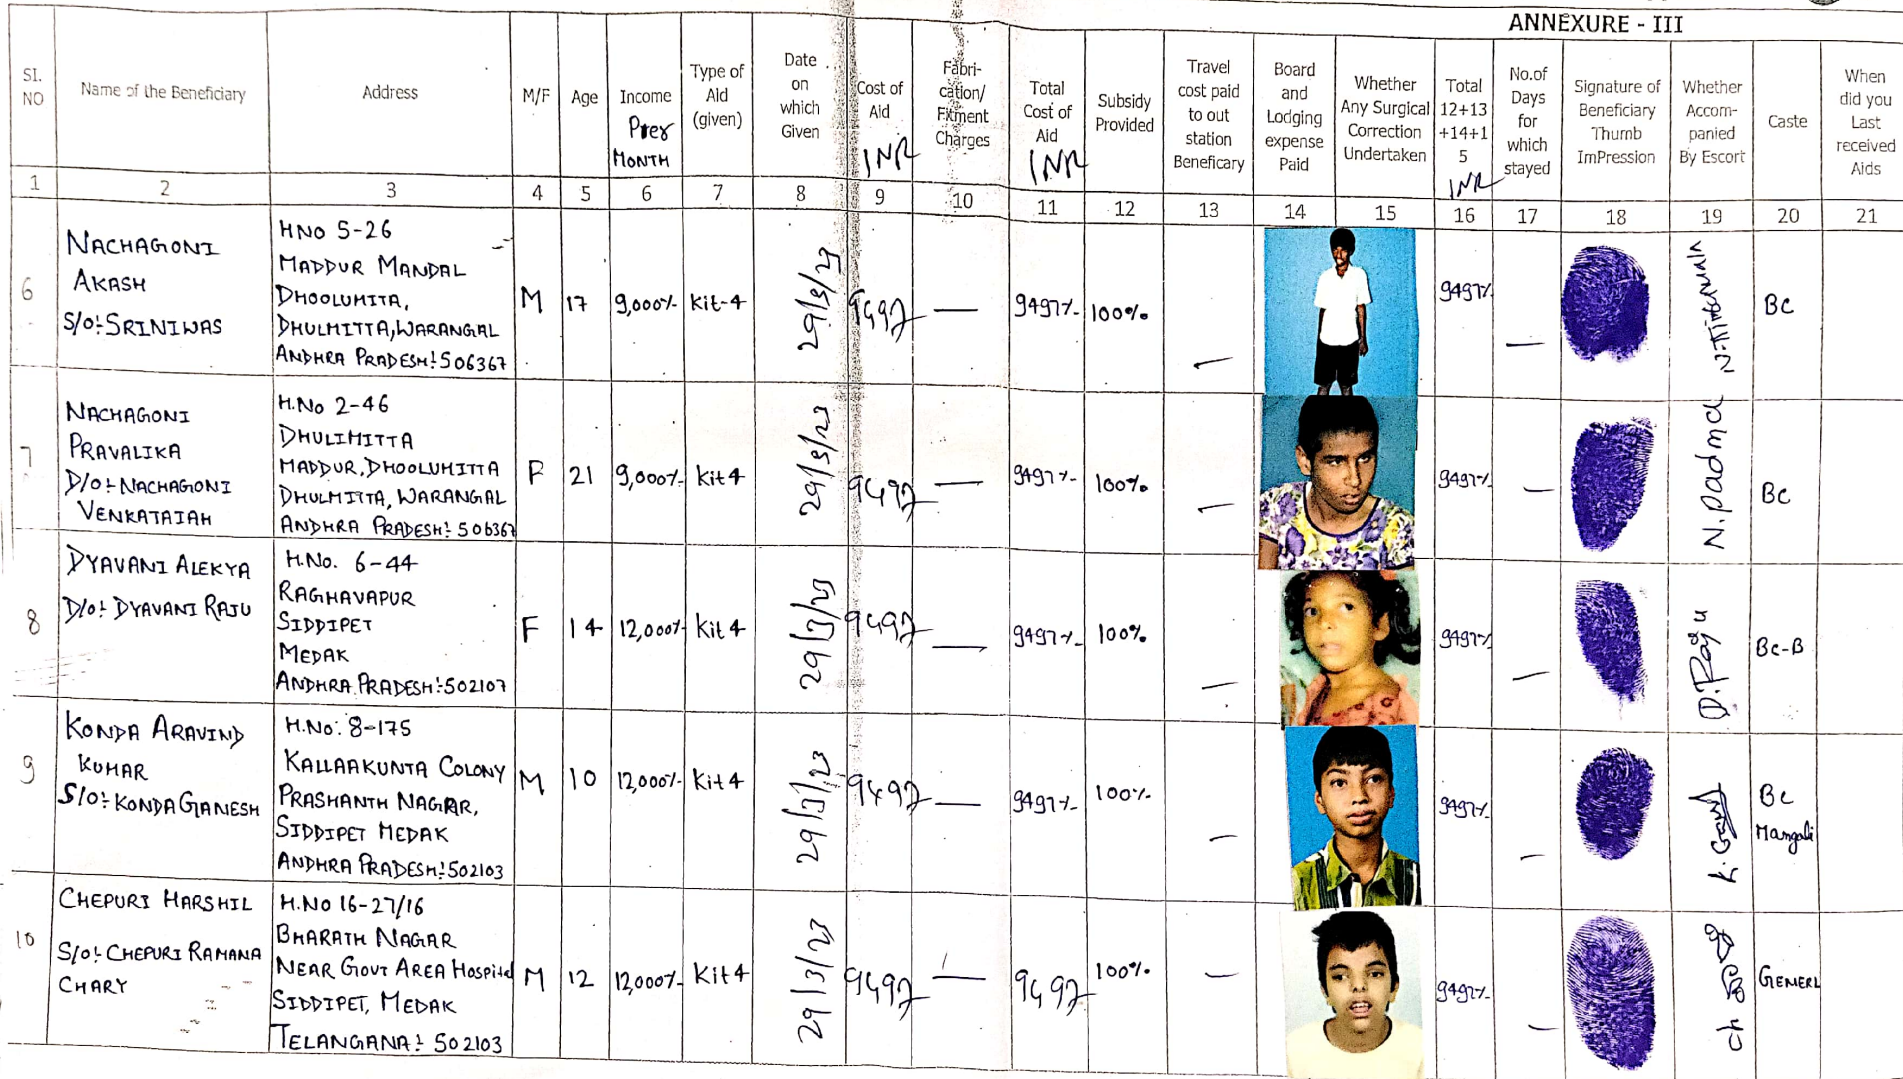 ANNEXURE - III
SI.
NO
Name of the Beneficiary
Address
M/F
Age
Income
Prer
MONTH
Type of
Aid
(given)
Date
on
which
Given
Cost of
Aid
INR
Fabri-
cation/
Fitment
Charges
Total
Cost of
Aid
INR
Subsidy
Provided
Travel
cost paid
to out
station
Beneficary
Board
and
Lodging
expense
Paid
Whether
Any Surgical
Correction
Undertaken
Total
12+13
+14+1
5
INR
No.of
Days
for
which
stayed
Signature of
Beneficiary
Thumb
ImPression
Whether
Accom-
panied
By Escort
Caste
When
did you
Last
received
Aids
1 2 3 4 5 6 7 8 9 10 11 12 13 14 15 16 17 18 19 20 21
6
NACHAGONI
AKASH
S/o:- SRINIWAS
HNO 5-26
MADDUR MANDAL
DHOOLUMITA,
DHULMITTA, WARANGAL
ANDHRA PRADESH:- 506367
M
17
9,000/-
Kit-4
29/3/23
9497
—
9497/-
100%
—
9497/-
—
N. Tirumala
BC
7
NACHAGONI
PRAVALIKA
D/o:- NACHAGONI
VENKATAIAH
H.No 2-46
DHULIMITTA
MADDUR, DHOOLUMITTA
DHULMITTA, WARANGAL
ANDHRA PRADESH:- 506367
F
21
9,000/-
Kit 4
29/3/23
9497
—
9497/-
100%
—
9497/-
—
N. padma
BC
8
DYAVANI ALEKYA
D/o:- DYAVANI RAJU
H.No. 6-44
RAGHAVAPUR
SIDDIPET
MEDAK
ANDHRA PRADESH:- 502107
F
14
12,000/-
Kit 4
29/3/23
9497
—
9497/-
100%
—
9497/-
—
D. Raju
BC-B
9
KONDA ARAVIND
KUMAR
S/o:- KONDA GANESH
H.No: 8-175
KALLAAKUNTA COLONY
PRASHANTH NAGAR,
SIDDIPET MEDAK
ANDHRA PRADESH:- 502103
M
10
12,000/-
Kit 4
29/3/23
9497
—
9497/-
100%
—
9497/-
—
BC
Mangali
10
CHEPURI HARSHIL
S/o:- CHEPURI RAMANA
CHARY
H.No 16-27/16
BHARATH NAGAR
NEAR GOVT AREA Hospital
SIDDIPET, MEDAK
TELANGANA:- 502103
M
12
12,000/-
Kit 4
29/3/23
9497
—
9497
100%
—
9497/-
—
GENERL